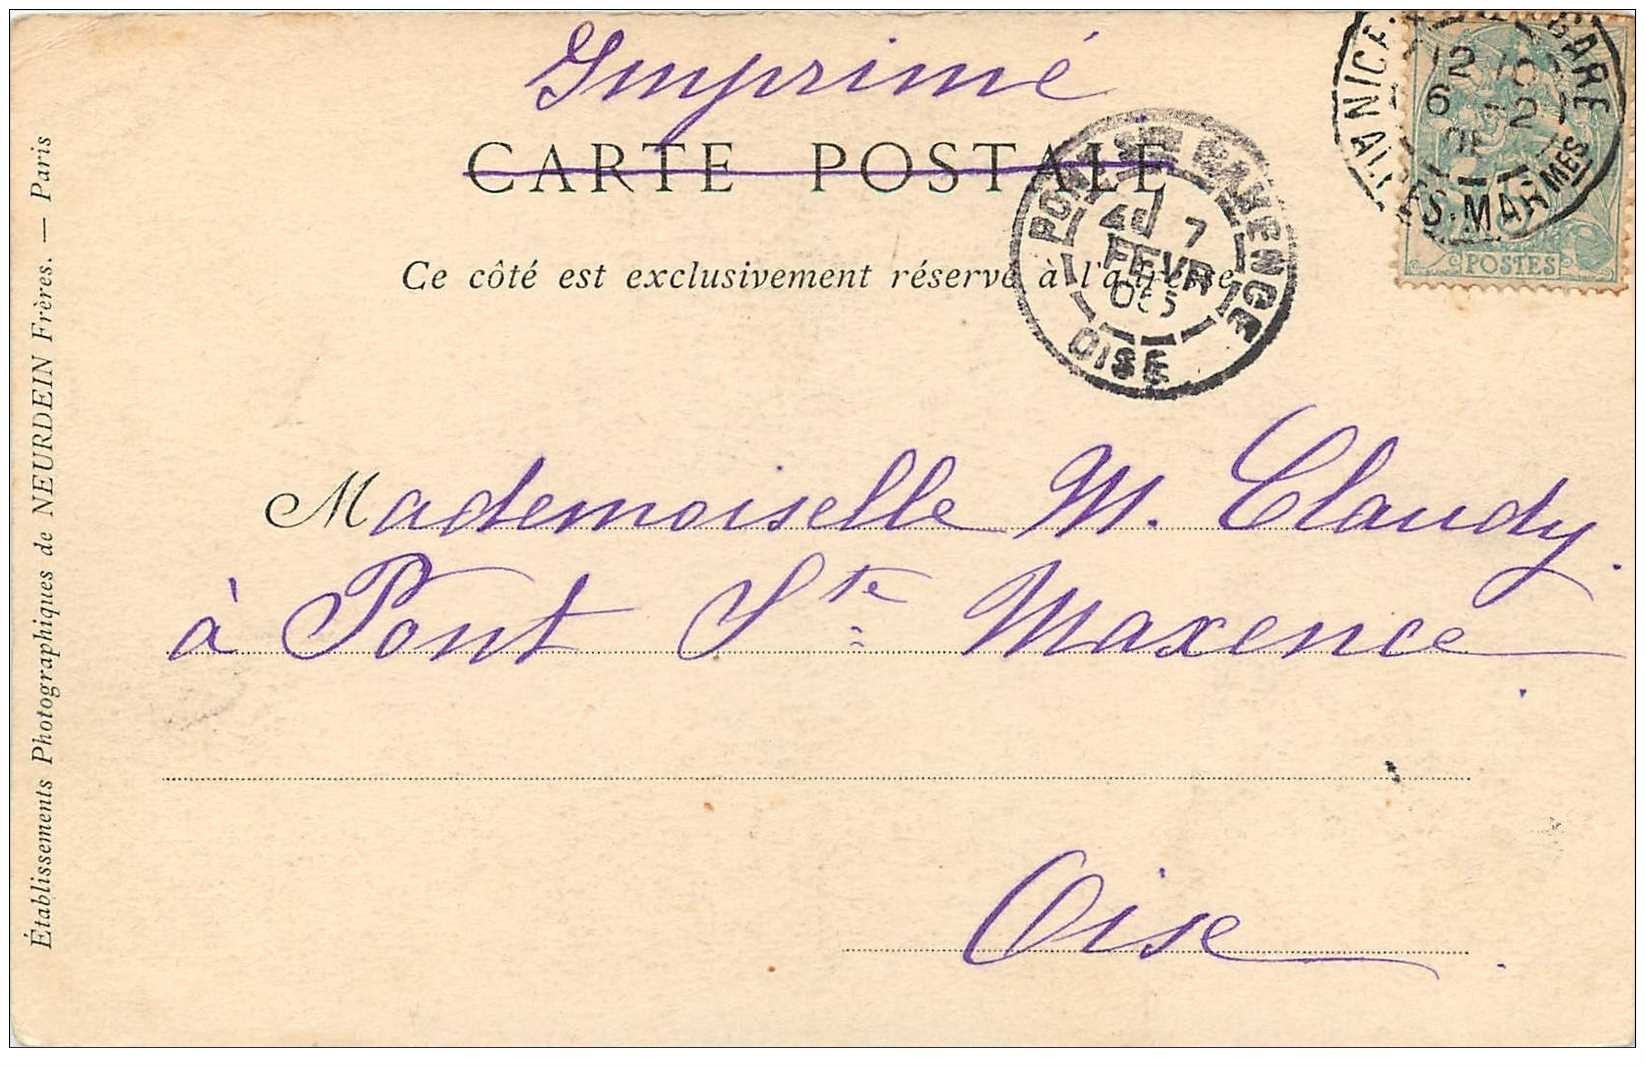 Imprimé
CARTE POSTALE
Ce côté est exclusivement réservé à l'adresse
PONT STE MAXENCE
7
FEVR
05
OISE
NICE
GARE
12
6 2
ES-MARMES
POSTES
Mademoiselle M. Claudy.
à Pont Ste Maxence
Oise.
Établissements Photographiques de NEURDEIN Frères. — Paris